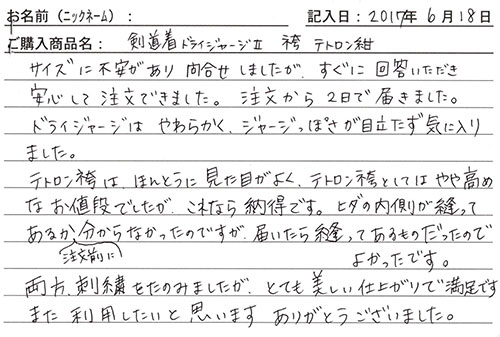 お名前(ニックネーム): 記入日: 2017年 6月18日
ご購入商品名: 剣道着 ドライジャージⅡ 袴 テトロン紺
サイズに不安があり 問合せしましたが、すぐに回答いただき
安心して注文できました。 注文から 2日で届きました。
ドライジャージは やわらかく、ジャージっぽさが目立たず気に入り
ました。
テトロン袴は、ほんとうに見た目がよく、テトロン袴としてはやや高め
なお値段でしたが、これなら納得です。ヒダの内側が縫って
あるか分からなかったのですが、届いたら縫ってあるものだったので
注文前に
よかったです。
両方、刺繍をたのみましたが、とても美しい仕上がりで満足です
また利用したいと思います ありがとうございました。